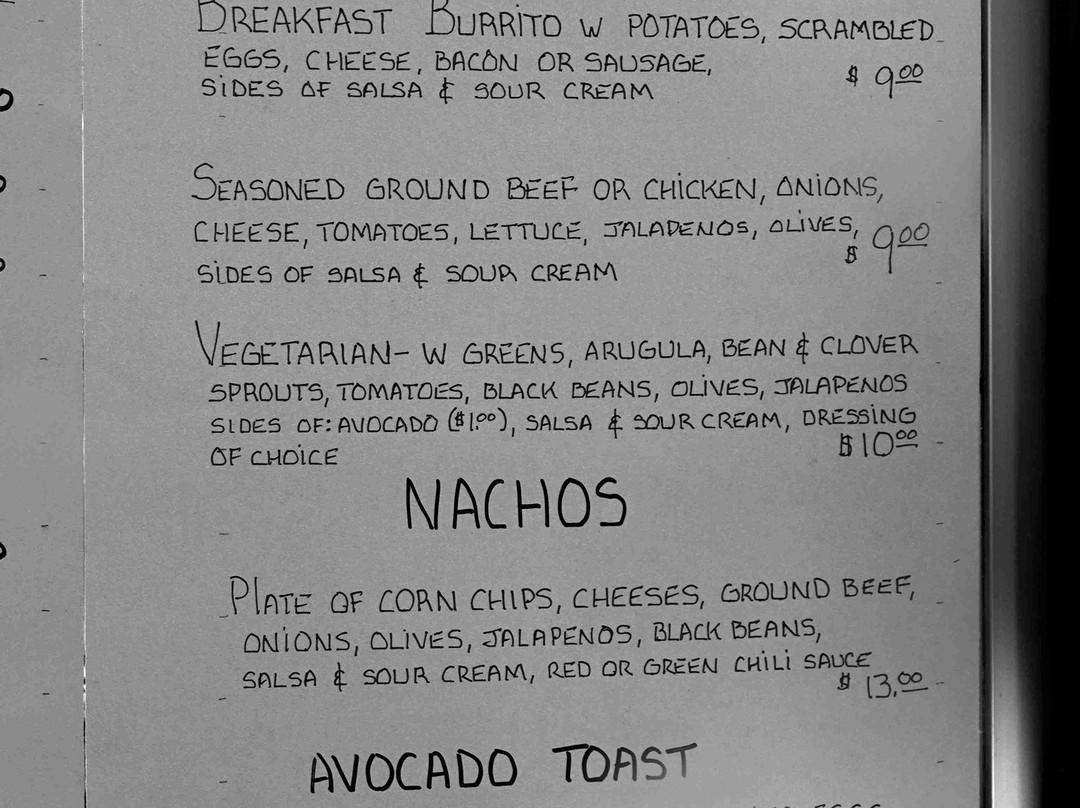 BREAKFAST BURRITO W POTATOES, SCRAMBLED
EGGS, CHEESE, BACON OR SAUSAGE,
SIDES OF SALSA & SOUR CREAM $ 9.00
SEASONED GROUND BEEF OR CHICKEN, ONIONS,
CHEESE, TOMATOES, LETTUCE, JALAPENOS, OLIVES,
SIDES OF SALSA & SOUR CREAM $ 9.00
VEGETARIAN- W GREENS, ARUGULA, BEAN & CLOVER
SPROUTS, TOMATOES, BLACK BEANS, OLIVES, JALAPENOS
SIDES OF: AVOCADO ($1.00), SALSA & SOUR CREAM, DRESSING
OF CHOICE $10.00
NACHOS
PLATE OF CORN CHIPS, CHEESES, GROUND BEEF,
ONIONS, OLIVES, JALAPENOS, BLACK BEANS,
SALSA & SOUR CREAM, RED OR GREEN CHILI SAUCE
$ 13.00
AVOCADO TOAST